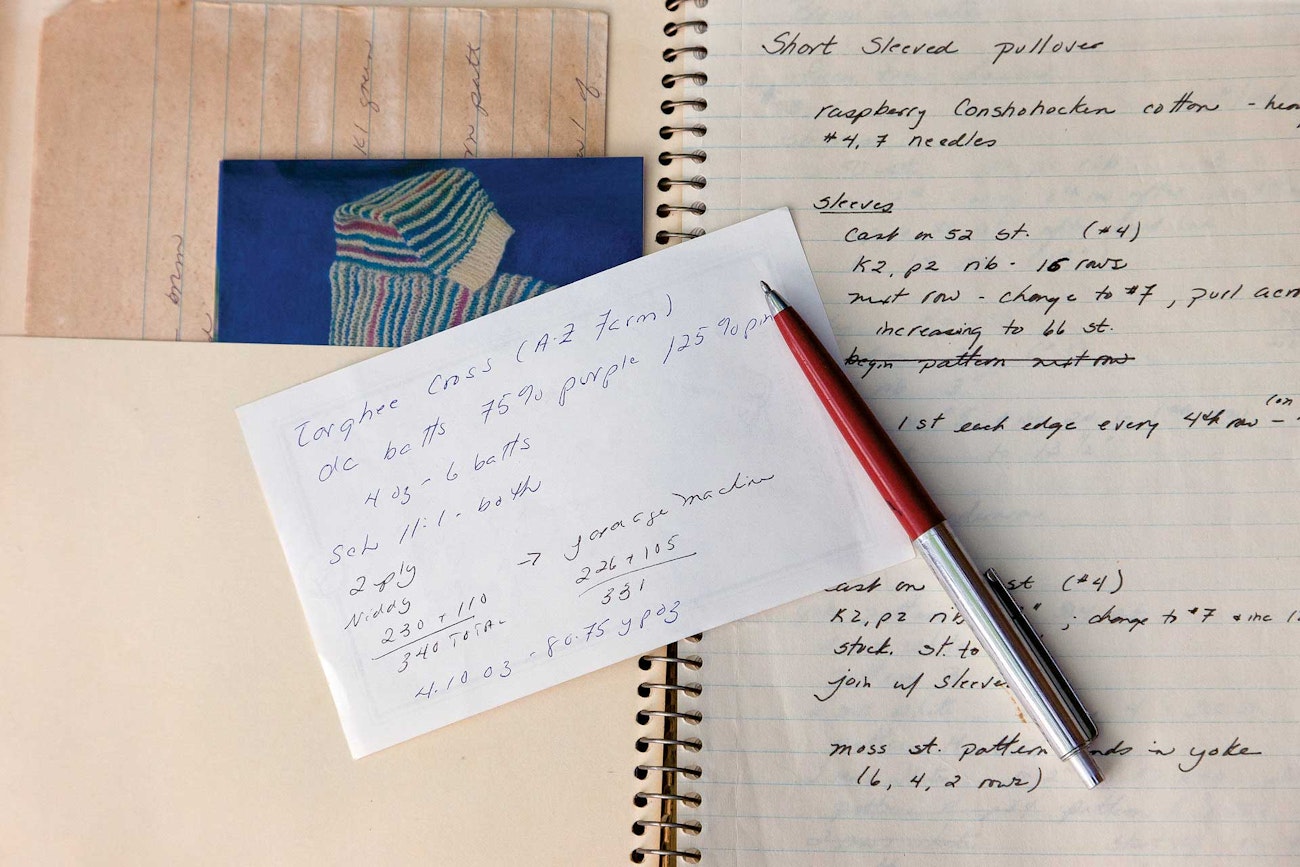 K1
row 1 of
Torghee Cross (A-Z Farm)
dc batts 75% purple 125% pin
4 oz - 6 batts
Sch 11:1 - both
2 ply
Niddy
230 + 110
340 TOTAL
→ yardage machine
226 + 105
331
4.10 oz - 80.75 ypoz
Short Sleeved pullover
raspberry Conshohocken cotton - hea
#4, 7 needles
sleeves
cast on 52 st. (#4)
K2, p2 rib - 15 rows
next row - change to #7, purl acro
increasing to 66 st.
begin pattern next row
1 st each edge every 4th row -
(on
cast on st (#4)
K2, p2 rib "; change to #7 & inc
stock. st to
join w/ sleeve
moss st. pattern nds in yoke
(6, 4, 2 rows)